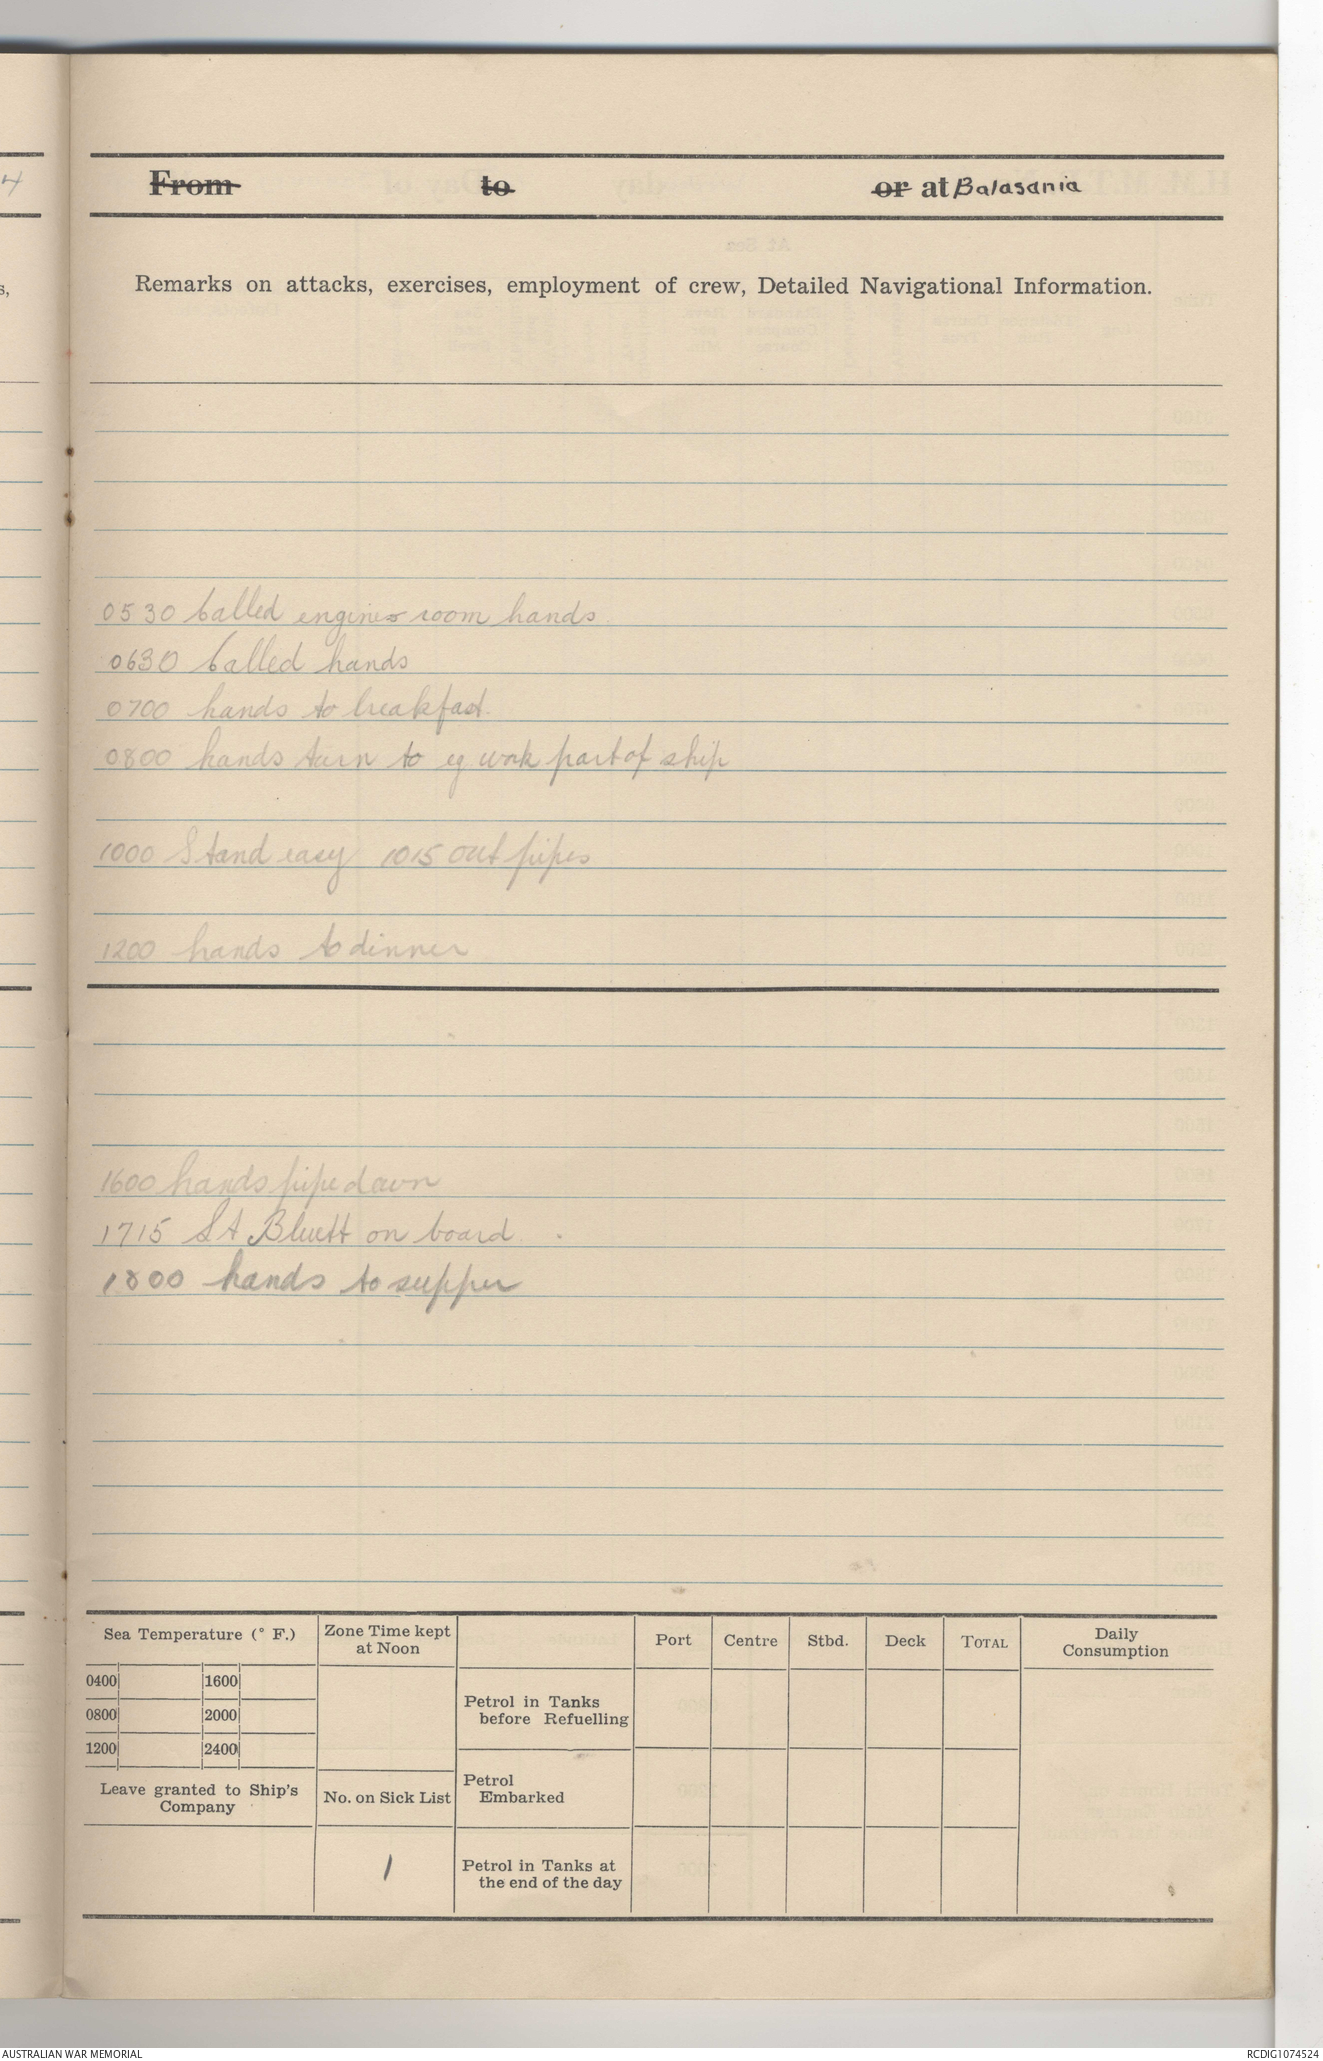 From to or at Balasania
Remarks on attacks, exercises, employment of crew, Detailed Navigational Information.
0530 Called engine room hands
0630 Called hands
0700 hands to breakfast.
0800 hands turn to eg work part of ship
1000 Stand easy 1015 out pipes
1200 hands to dinner
1600 hands pipe down
1715 Bluett on board
1800 hands to supper
Sea Temperature (° F.)
0400 1600
0800 2000
1200 2400
Leave granted to Ship's
Company
Zone Time kept
at Noon
No. on Sick List
1
Port Centre Stbd. Deck TOTAL Daily
Consumption
Petrol in Tanks
before Refuelling
Petrol
Embarked
Petrol in Tanks at
the end of the day
AUSTRALIAN WAR MEMORIAL RCDIG1074524